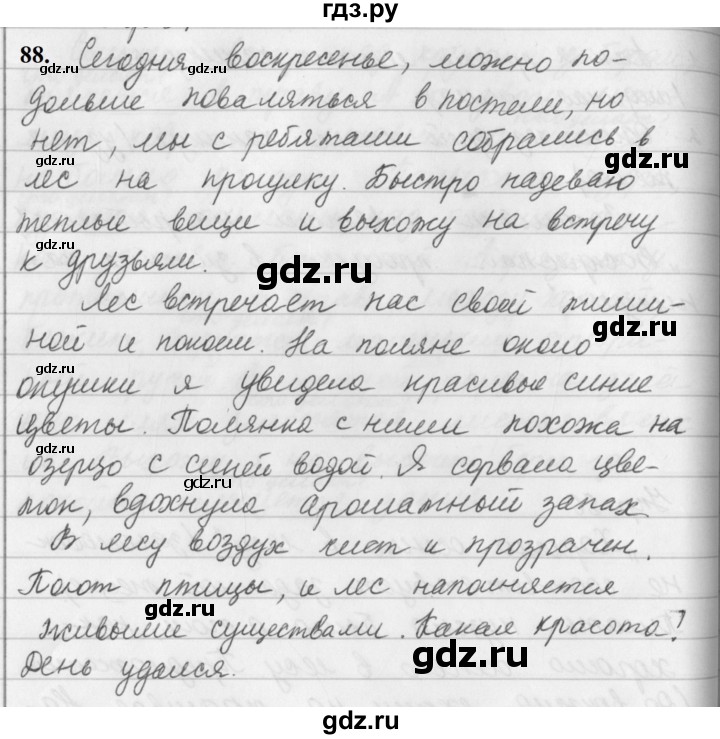 гдз.ру
88. Сегодня воскресенье, можно по-
дольше поваляться в постели, но
gdz.ru
нет, мы с ребятами собрались в
gdz.ru
gdz.ru
лес на прогулку. Быстро надеваю
теплые вещи и выхожу на встречу
gdz.ru
к друзьям.
gdz.ru
Лес встречает нас своей тиши-
gdz.ru
ной и покоем. На поляне около
gdz.ru
опушки я увидела красивые синие
цветы. Полянка с ними похожа на
gdz.ru
озерцо с синей водой. Я сорвала цве-
gdz.ru
ток, вдохнула ароматный запах
gdz.ru
В лесу воздух чист и прозрачен.
Поют птицы, и лес наполняется
gdz.ru
живыми существами. Какая красота!
День удался.
gdz.ru
gdz.ru
gdz.ru